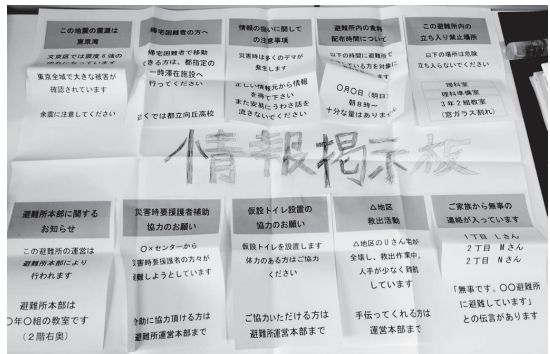 この地震の震源は
東京湾
文京区では震度6強の
東京全域で大きな被害が
確認されています
余震に注意してください
帰宅困難者の方へ
帰宅困難者で移動
できる方は、都指定の
一時滞在施設へ
行ってください
近くでは都立向丘高校
情報の扱いに関して
の注意事項
災害時は多くのデマが
発生します
正しい情報元から情報
を得て下さい
また安易にうわさ話を
流さないでください
避難所内の食料
配布時間について
以下の時間に避難所で
している方を対象に
○月○日(明日)
朝8時〜
十分な量はありません
この避難所内の
立ち入り禁止場所
以下の場所は危険
立ち入らないでください
理科室
理科準備室
3年2組教室
(窓ガラス割れ)
情報掲示板
避難所本部に関する
お知らせ
この避難所の運営は
避難所本部により
行われます
避難所本部は
○年○組の教室です
(2階右奥)
災害時要援護者補助
協力のお願い
○×センターから
災害時要援護者の方々が
避難しようとしています
介助に協力頂ける方は
避難所運営本部まで
仮設トイレ設置の
協力のお願い
仮設トイレを設置します
体力のある方はご協力
ください
ご協力いただける方は
避難所運営本部まで
△地区
救出活動
△地区のUさん宅が
全壊し、救出作業中。
人手が少なく難航
しています
手伝ってくれる方は
運営本部まで
ご家族から無事の
連絡が入っています
1丁目 Lさん
2丁目 Mさん
2丁目 Nさん
「無事です。○○避難所
に避難しています」
との伝言があります